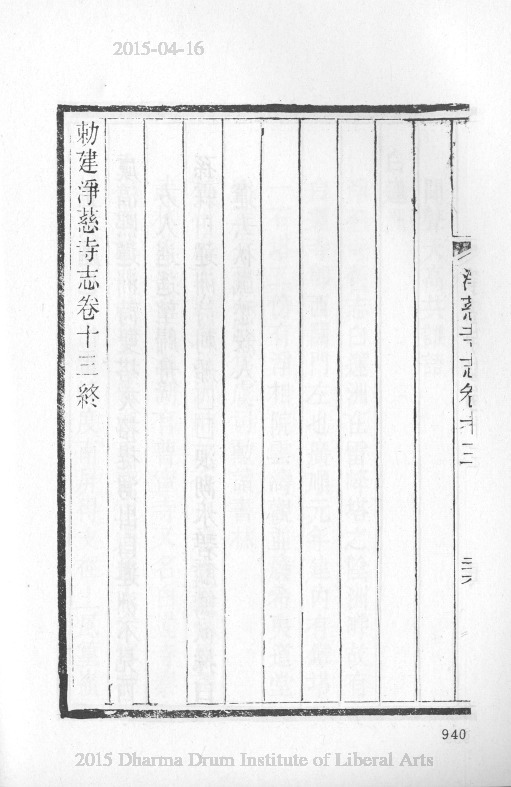 2015-04-16
淨慈寺志卷十三
二六
勅建淨慈寺志卷十三終
940
2015 Dharma Drum Institute of Liberal Arts